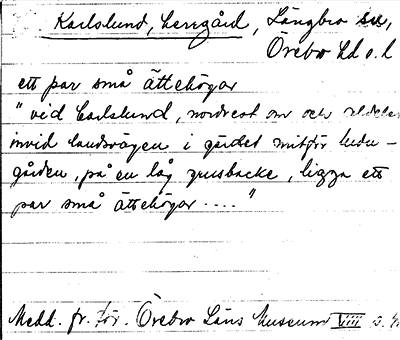 Karlslund, herrgård, Längbro sn,
Örebro hd o. l
ett par små ättehögar
"vid Carlslund, nordvest om och
invid landsvägen i gärdet mitför ladu-
gården, på en låg grusbacke, ligga ett
par små ättehögar ...."
Medd. fr. för. Örebro Läns Museum VIII s.